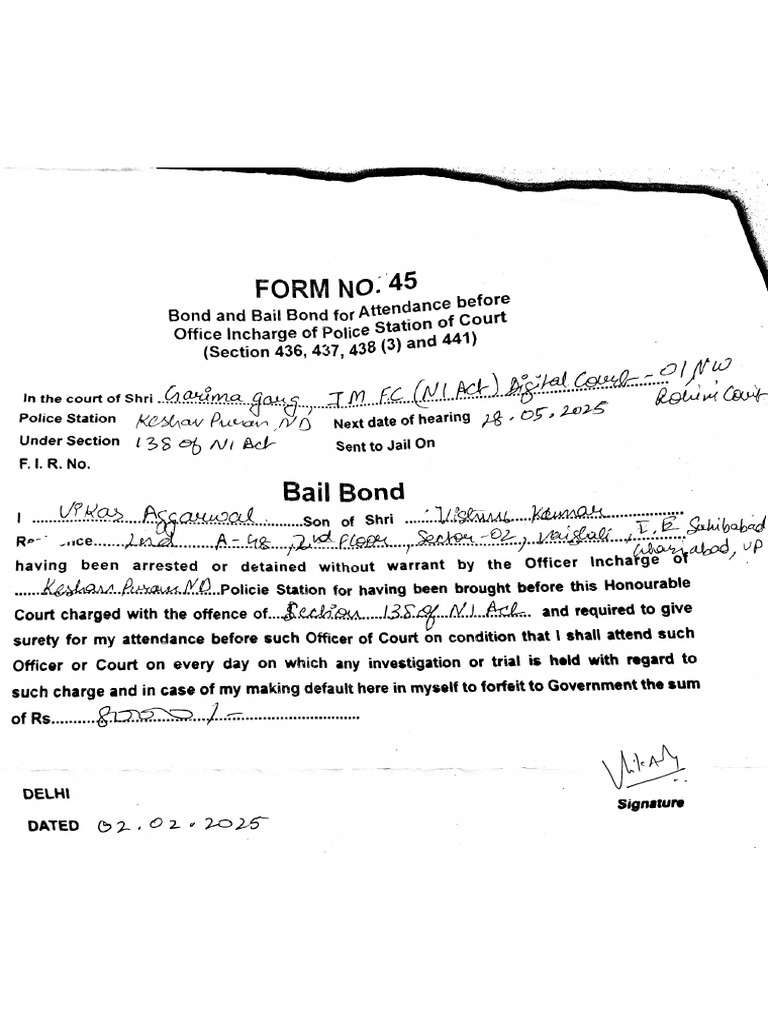 FORM NO. 45
Bond and Bail Bond for Attendance before
Office Incharge of Police Station of Court
(Section 436, 437, 438 (3) and 441)
In the court of Shri Garima Garg, JMFC (NI Act) Digital Court-01, NW
Rohini Court
Police Station Keshav Puram, ND Next date of hearing 28.05.2025
Under Section 138 of NI Act Sent to Jail On
F. I. R. No.
Bail Bond
I Vikas Aggarwal Son of Shri Vishnu Kumar
Re ince A-48, 2nd Floor, Sector-02, Vaishali, I.E Sahibabad
Ghaziabad, UP
having been arrested or detained without warrant by the Officer Incharge of
Keshav Puram ND Policie Station for having been brought before this Honourable
Court charged with the offence of Section 138 of NI Act and required to give
surety for my attendance before such Officer of Court on condition that I shall attend such
Officer or Court on every day on which any investigation or trial is held with regard to
such charge and in case of my making default here in myself to forfeit to Government the sum
of Rs. 8000/-
DELHI
Signature
DATED 02.02.2025